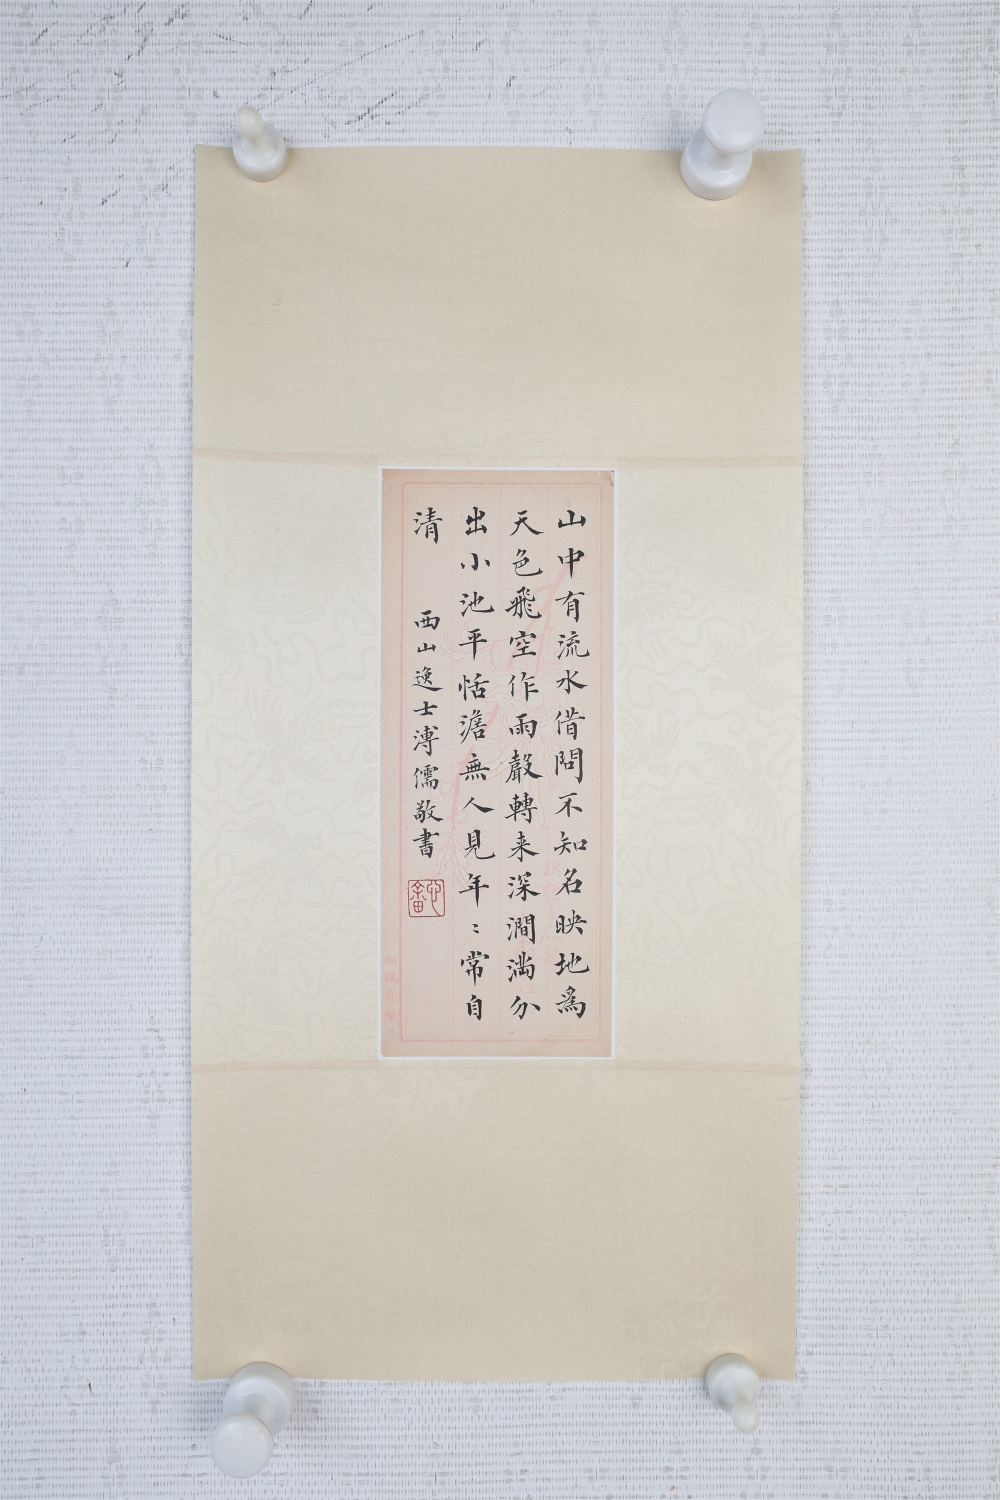 山中有流水借問不知名映地為
天色飛空作雨聲轉来深澗満分
出小池平恬澹無人見年〻常自
清
西山逸士溥儒敬書